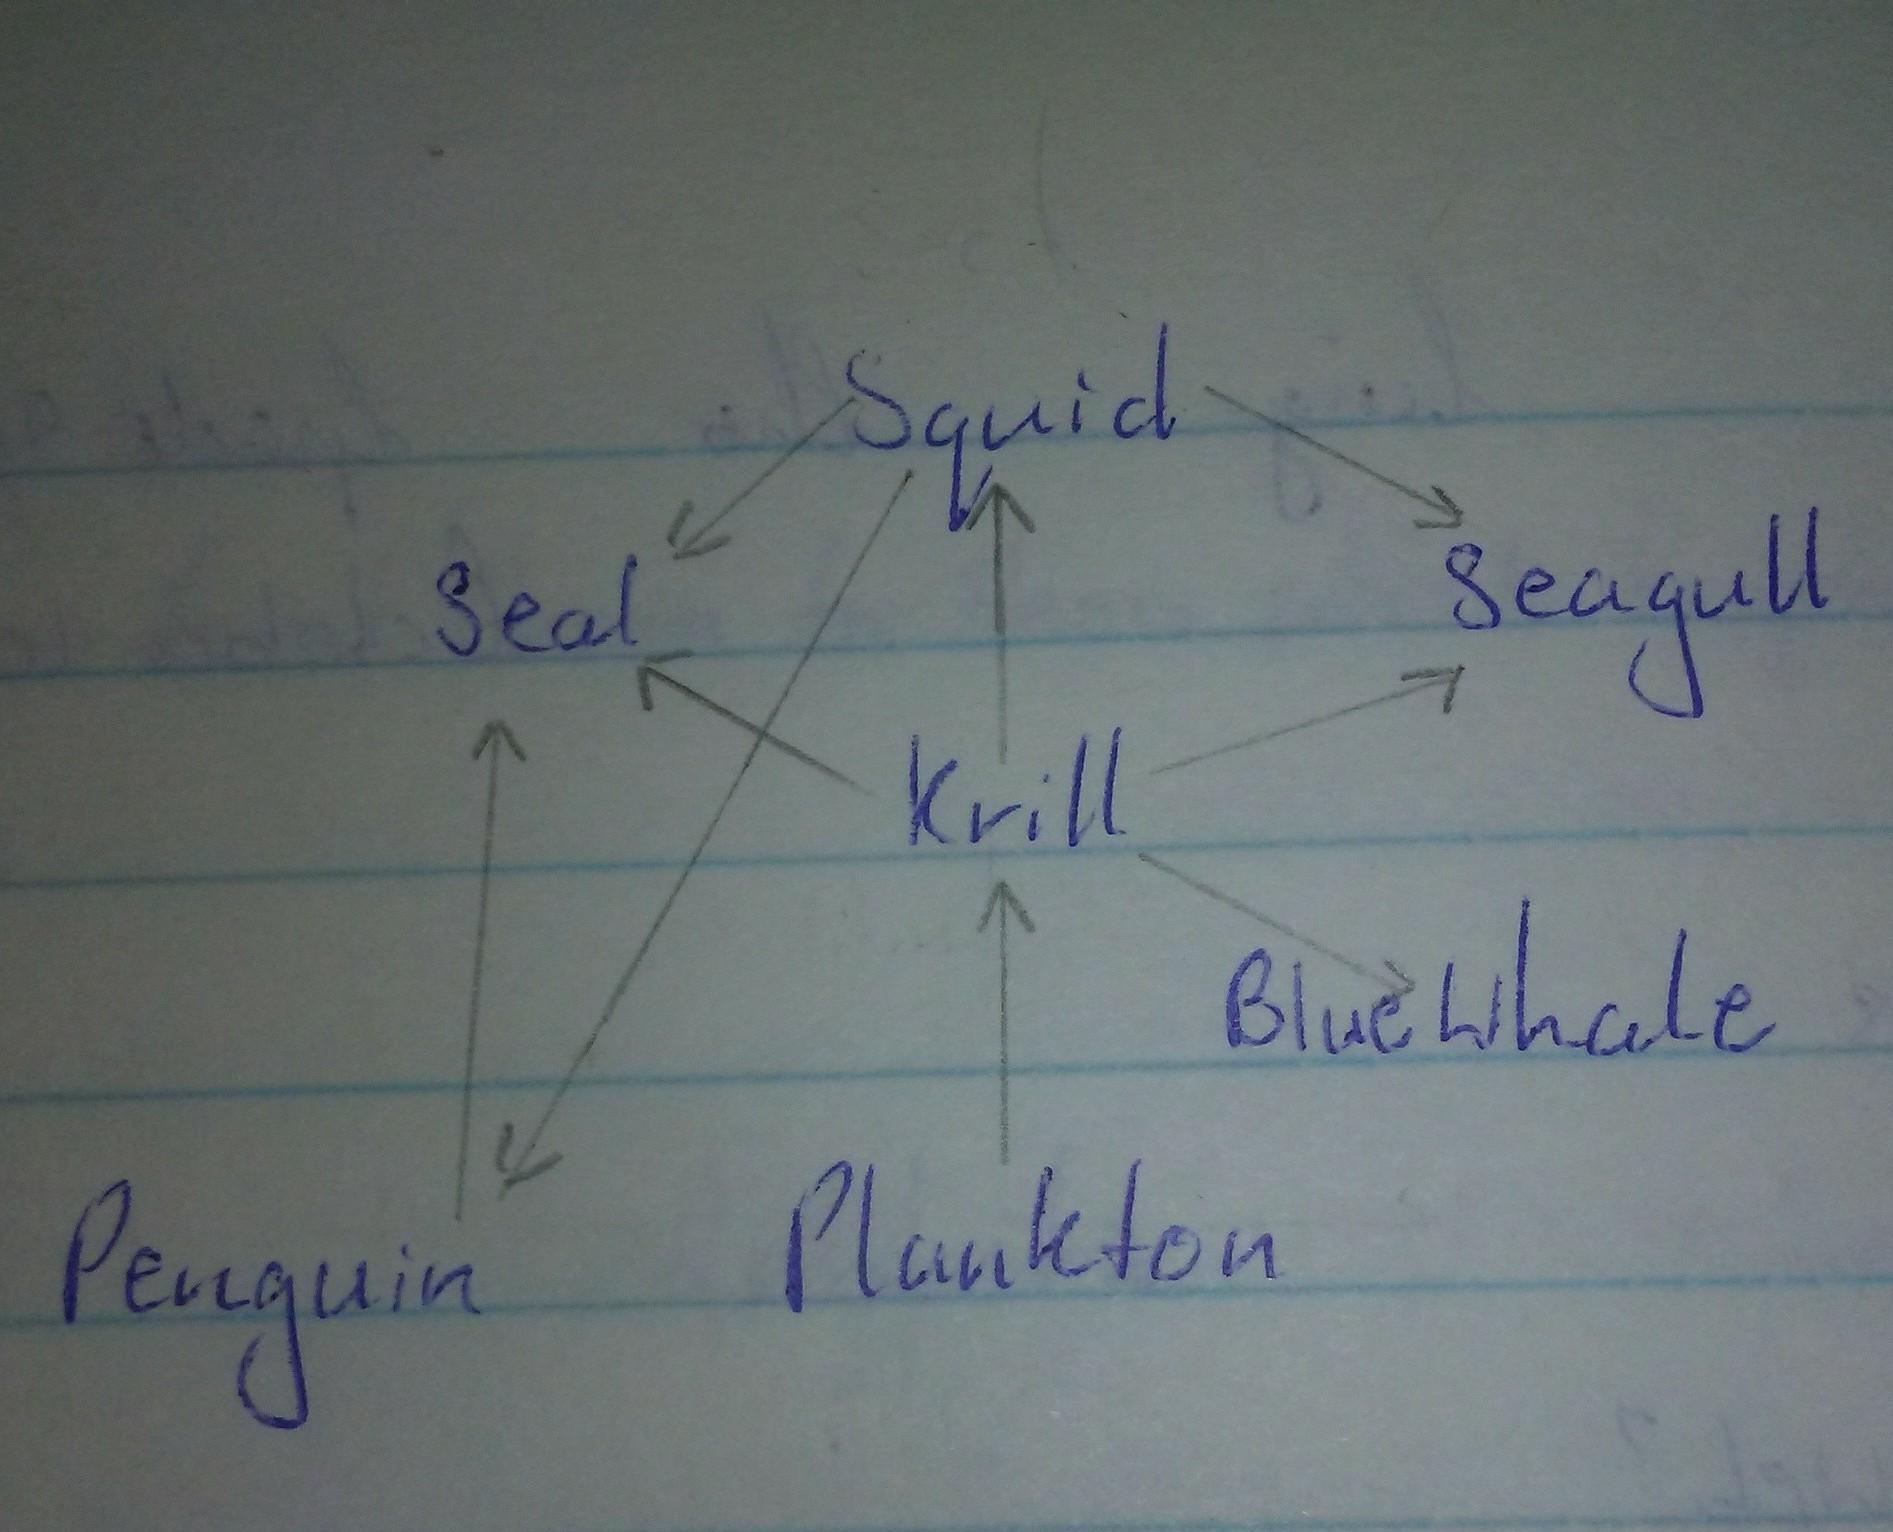 Squid
Seal
Seagull
Krill
Blue Whale
Penguin
Plankton